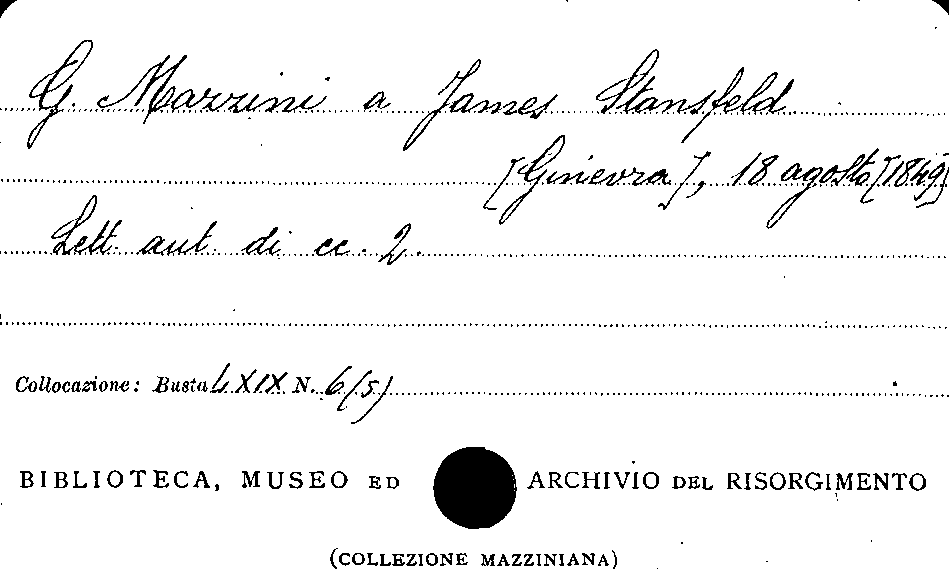 G. Mazzini a James Stansfeld
[Ginevra], 18 agosto [1849]
Lett. aut. di cc. 2.
Collocazione: Busta LXIX N. 6(5)
BIBLIOTECA, MUSEO ED ARCHIVIO DEL RISORGIMENTO
(COLLEZIONE MAZZINIANA)